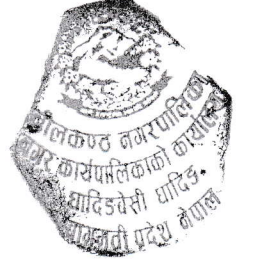 नीलकण्ठ नगरपालिका
नगर कार्यपालिकाको कार्यालय
धादिङवेसी धादिङ
बागमती प्रदेश नेपाल